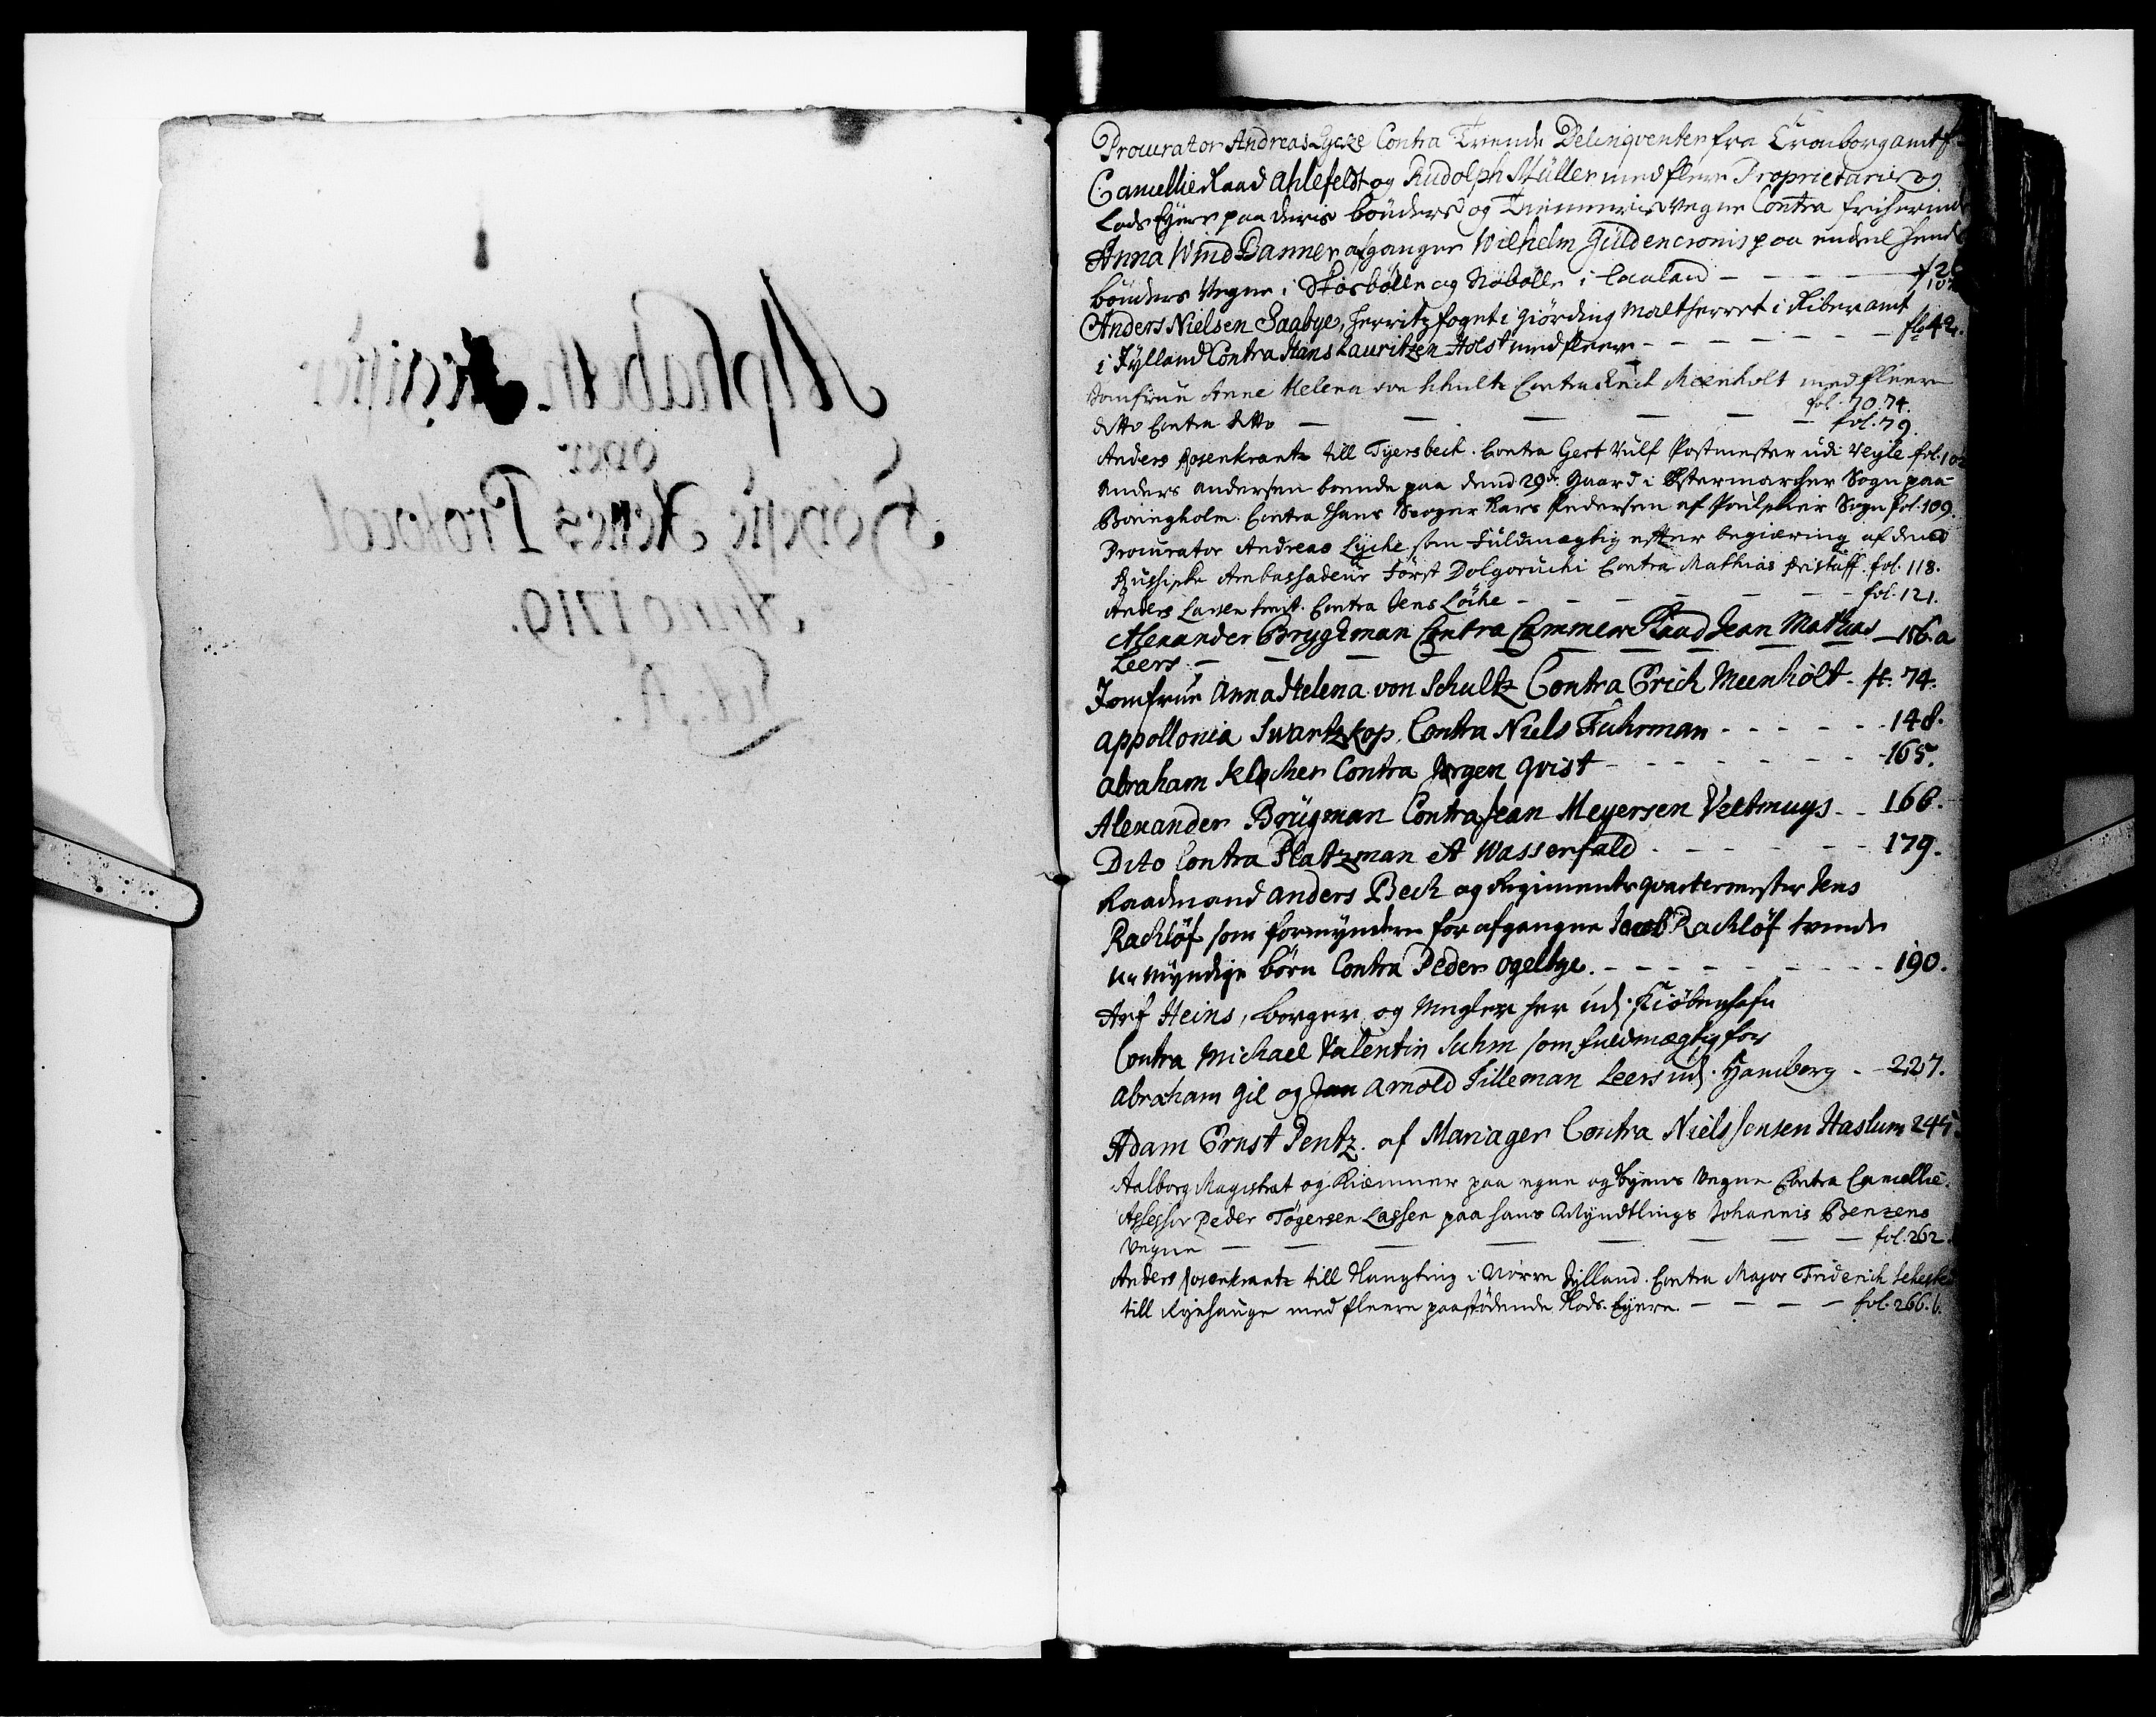 Alphabeth Register
over
Höyeste Rettes Protocol
Anno 1719.
Lit: A.
Procurator Andreas Lycke Contra Trende Delinqventer fra Cronborg amt f
CancellieRaad Ahlefeldt og Rudolph Müller med fleere Proprietarier og
Lods Eyere paa deris bönders og Tienneris Vegne Contra friherinde
Anna Wind Danner afgangne Wilhelm Güldencronis paa endeel hendes
bönders Vegne i Skosbölle og Nöbölle i Laaland - - - - f 2
Anders Nielsen Saabye, herritzfoget i Giörding Maltherret i Riber amt
i Jylland Contra Hans Lauritzen Holst med fleere - - - - - - fl 42.
Jomfrue Anne Helena von Schultz Contra Erich Meenholt med fleere
fol. 70. 74.
ditto Contra ditto — — — — — fol. 79.
Anders Rosenkrantz till Tyersbeck. Contra Gert Wulf Postmester udi Veyle fol. 10
Anders Andersen boende paa dend 29de Gaard i Östermarcher Sogn paa
Boringholm. Contra Hans Svoger Lars Pedersen af Poulscher Sogn fol. 109.
Procurator Andreas Lycke som Fuldmægtig efter begiæring af dend
Russiske Ambassadeur Först Dolgoruchi Contra Mathias Pristaff. fol. 118.
Anders Larsen Contra Jens Löche - - - - - - fol. 121.
Alexander Brygman Contra Cammer Raad Jean Mathias
Leers - — — — — — — — 156. a
Jomfrue Anna Helena von Schultz Contra Erich Meenholt - fl. 74.
Appollonia Swartzkop. Contra Niels Fuhrman - - - - - 148.
Abraham Klöcher Contra Jörgen Qvist - - - - - - - 165.
Alexander Brügman Contra Jean Meyersen Veltmuys - - 166.
Dito Contra Platzman et Wasserfald - - - - - - 179.
Raadmand Anders Beck og Regimentsqvartermester Jens
Rachlöf som formyndere for afgangne Jacob Rachlöf tvende
umyndige börn Contra Peder Ogelbye. - - - - - - - - 190.
Arf Heins, borger og Megler her udj Kiöbenhafn
Contra Michael Valentin Suhm som fuldmægtig for
Abraham Gil og Jan Arnold Tilleman Leers udj Hamborg - - 227.
Adam Ernst Pentz. af Mariager Contra Niels Jensen Haslum 244
Aalborg Magistrat og Kiæmner paa egne og byens Vegne Contra Cancellie-
Assessor Peder Tögersen Lassen paa hans Myndtlings Johannis Benzens
Vegne — — — — — — — fol. 262
Anders Rosenkrantz till Hungting i Nörre Jylland. Contra Major Friderich Sehested
till Ryehauge med fleere paastödende Lods-Eyere. - — — — fol. 266. b.